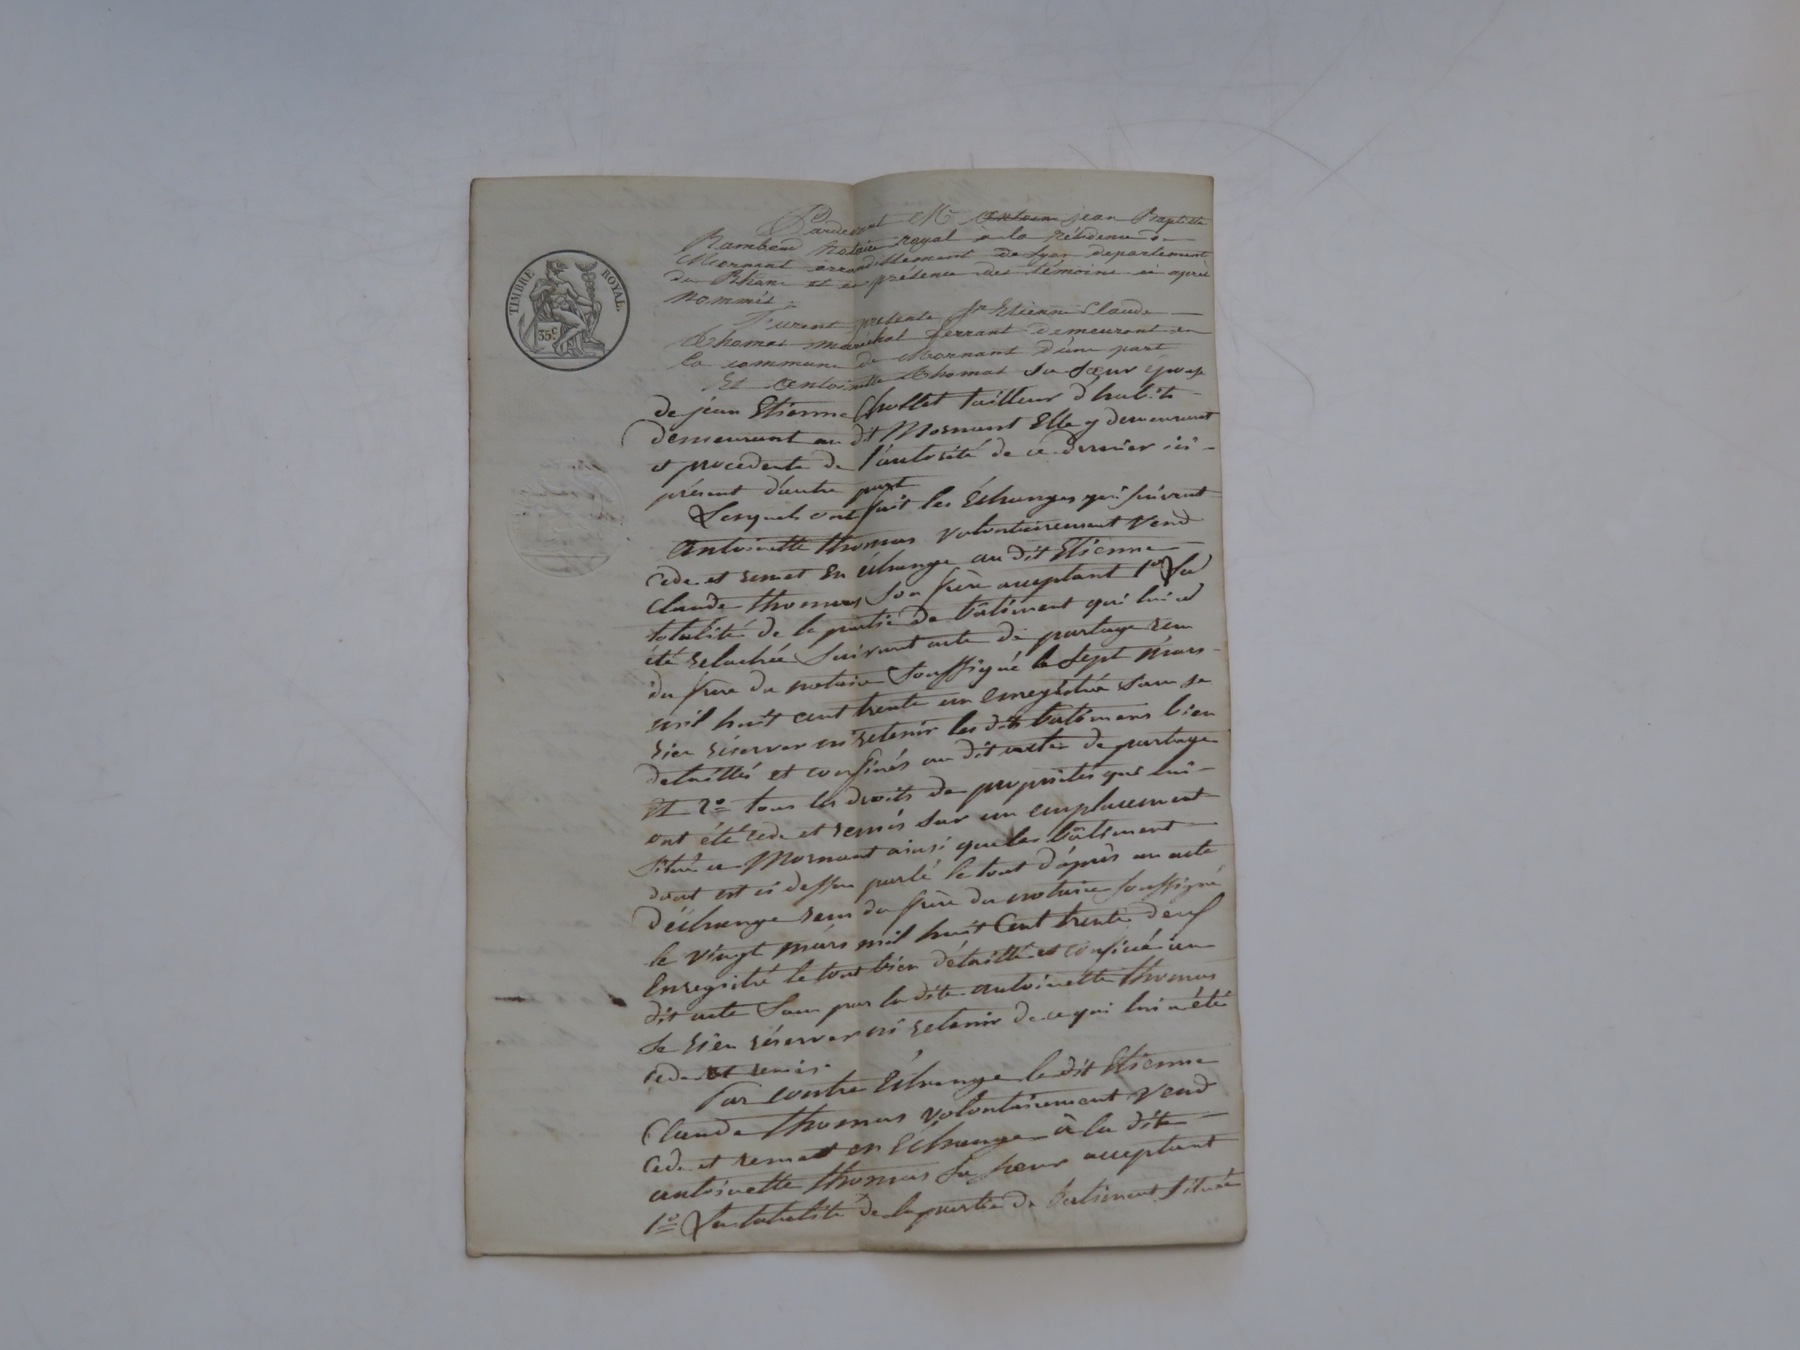 TIMBRE ROYAL
35c
Pardevant Me Antoine jean Baptiste
Rambaud notaire royal à la résidence de
Mornant arrondissement de Lyon departement
du Rhône et en présence des témoins ci après
nommés :
Furent présents Sr Etienne Claude
Thomas maréchal ferrant demeurant en
la commune de Mornant d'une part
Et Antoinette Thomas sa sœur épouse
de jean Etienne Chollet tailleur d'habits
demeurant au dit Mornant Elle y demeurant
et procedente de l'autorité de ce dernier ici
présent d'autre part
Lesquels ont fait les Echanges qui suivent
Antoinette thomas volontairement Vend
Cede et remet En échange au dit Etienne
Claude thomas Son frère acceptant 1° La
totalité de la partie de bâtiment qui lui a
été relachée Suivant acte de partage reçu
du frère du notaire Soussigné le Sept Mars
mil huit cent trente un enregistré Sans se
rien réserver ni retenir les dits batimens bien
detaillés et confinés au dit acte de partage
Et 2° tous les droits de propriétés qui lui
ont été cedé et remis Sur un emplacement
Situé a Mornant ainsi que les bâtiment
dont est ci dessus parlé le tout d'après un acte
d'échange reçu du frère du notaire Soussigné
le vingt Mars mil huit Cent trente deux
Enregistré le tout bien détaillé et confiné au
dit acte Sans par la dite Antoinette thomas
Se rien réserver ni retenir de ce qui lui a été
cedé et remis.
Par contre Echange le dit Etienne
Claude thomas volontairement Vend
Cede et remet en Echange à la dite
antoinette thomas Sa sœur acceptant
1° La totalité de la partie de batiment Située